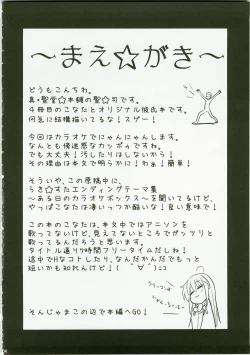 ～まえ☆がき～
どうもこんちわ。
真・聖堂☆本舗の聖☆司です。
4冊目のこなたとオリジナル彼氏本です。
何気に結構描いてるな!スゲー!
今回はカラオケでにゃんにゃんします。
なんとも傍迷惑なカッポゥですね。
でも大丈夫!汚したりはしないから!
その理由は本文で明らかに!わぁ!簡単!
そういや、この原稿中に、
らき☆すた エンディングテーマ集
～ある日のカラオケボックス～を聞いてるけど、
やっぱこなたは凄いっつか酷いな!良い意味で!
この本のこなたは、本文中ではアニソンを
歌ってないけど、見えてないところでガッツリと
歌ってるんだろうと思います。
タイトル通り7時間フリータイムだしね!
途中でHなコトしたり、なんだかんだでもっと
短いかも知れんけど!(゜∀゜)ニコ
そんじゃまこの辺で本編へGO!